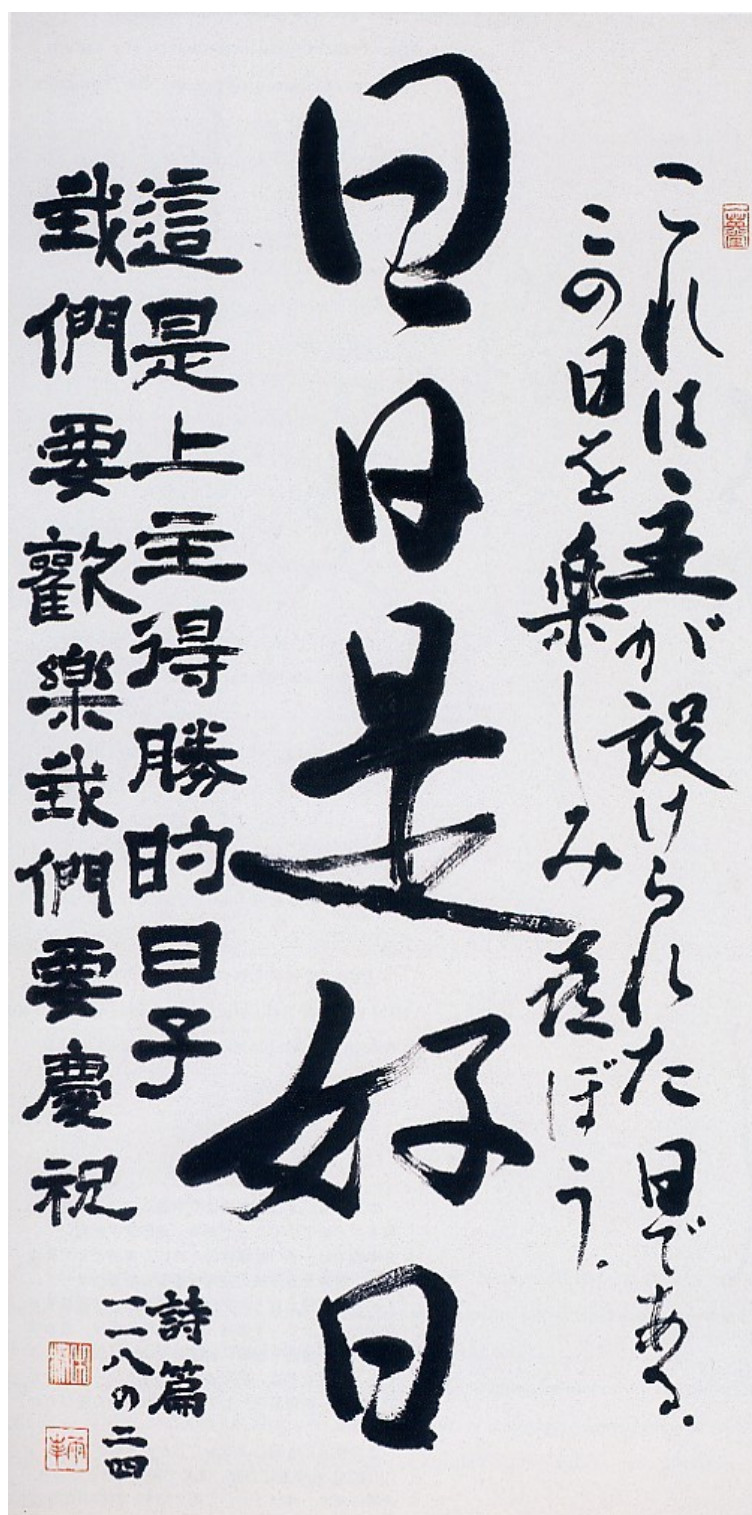 これは主が設けられた日である。
この日を楽しみ喜ぼう。
日日是好日
這是上主得勝的日子
我們要歡樂我們要慶祝
詩篇
一一八の二四